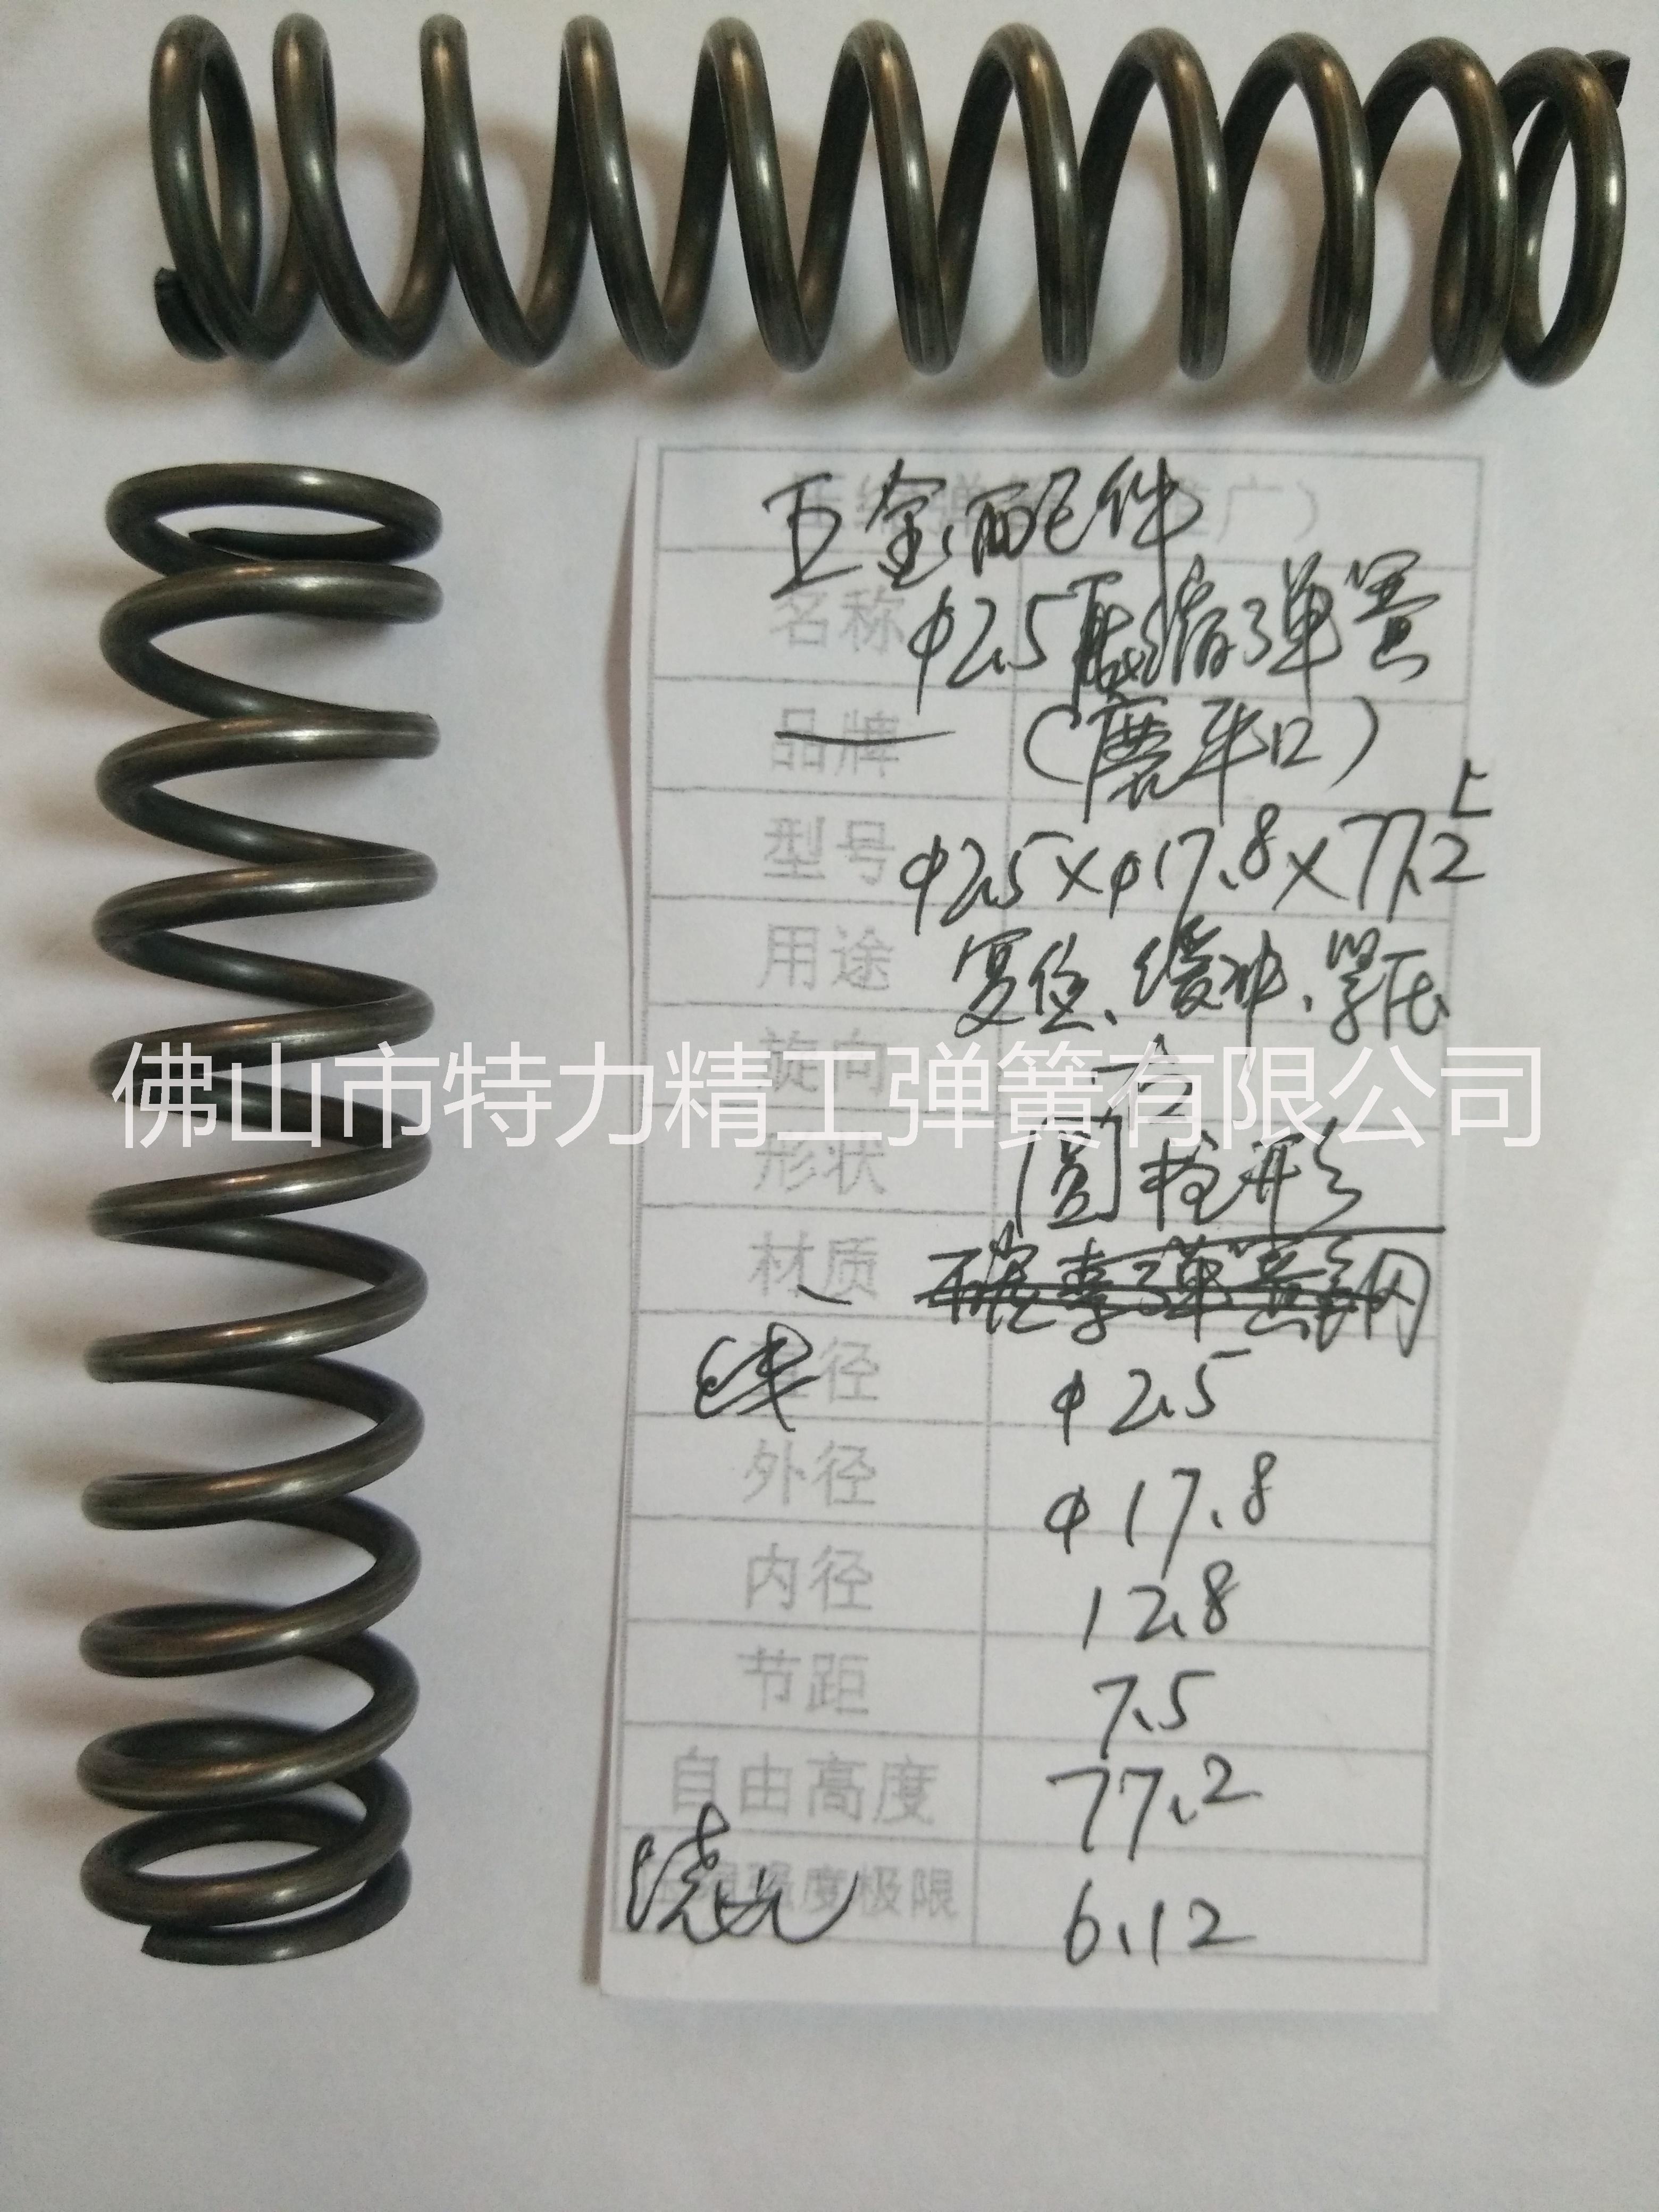 五金配件
名称 φ2.5压缩弹簧
品牌 (磨平口)
型号 φ2.5×φ17.8×77.2
用途 复位、缓冲、紧压
旋向 右
佛山市特力精工弹簧有限公司
形状 圆柱形
材质
线径 φ2.5
外径 φ17.8
内径 12.8
节距 7.5
自由高度 77.2
强度极限 6.12